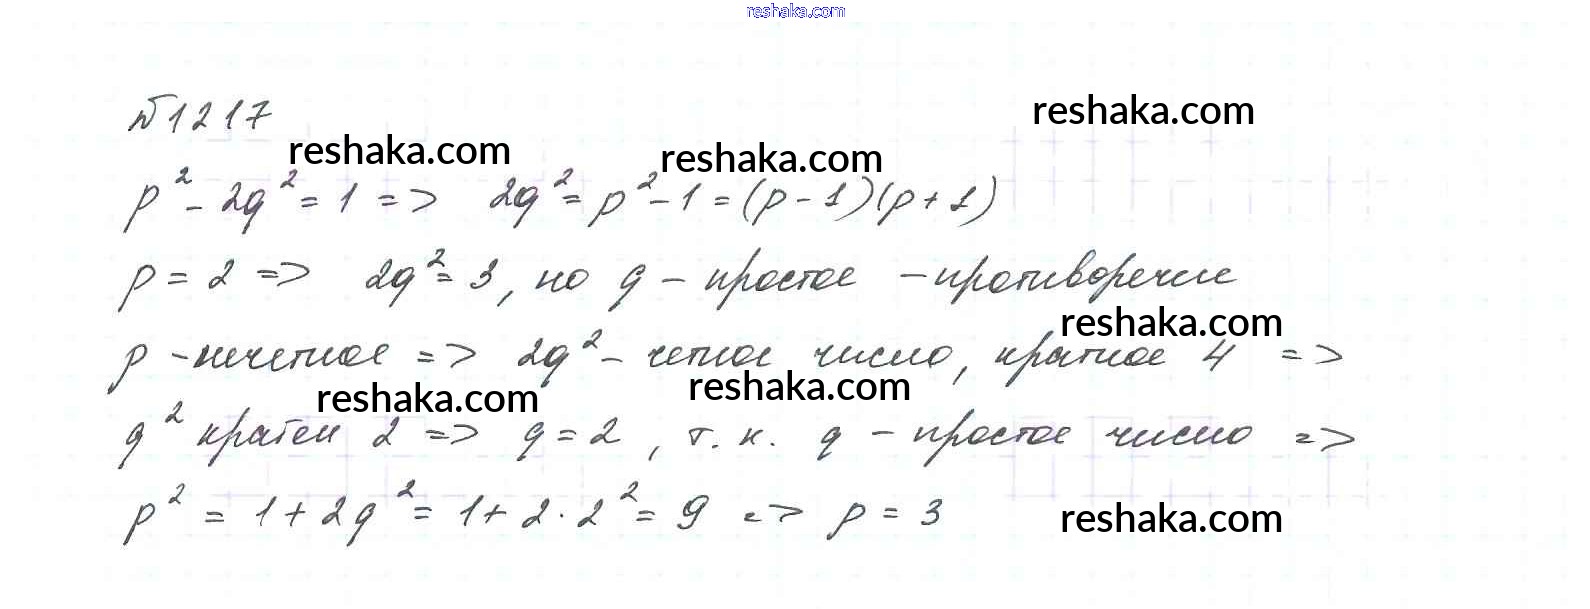 reshaka.com
№1217
reshaka.com
reshaka.com
reshaka.com
p² - 2q² = 1 => 2q² = p² - 1 = (p - 1)(p + 1)
p = 2 => 2q² = 3, но q - простое - противоречие
reshaka.com
p - нечетное => 2q² - четное число, кратное 4 =>
reshaka.com
reshaka.com
q² кратен 2 => q = 2, т. к. q - простое число =>
p² = 1 + 2q² = 1 + 2 · 2² = 9 => p = 3
reshaka.com